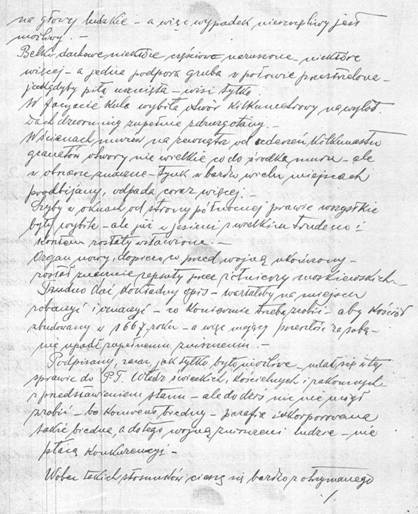 na głowy ludzkie – a więc wypadek nieszczęśliwy jest
możliwy. –
Belki dachowe niektóre częściowo naruszone, niektóre
więcej – a jedna podpora gruba w połowie przestrzelona –
jakgdyby piłą nacięta – wisi tylko.
W facjacie kula wybiła otwór kilkumetrowy na wylot.
Dach dzwonnicy zupełnie zdruzgotany.
W ścianach, murów na zewnątrz od uderzeń kilkunastu
granatów otwory nie wielkie w do środka muru – ale
w obronie – tynk w bardzo wielu miejscach
podbijany, odpada coraz więcej. –
Szyby w oknach od strony północnej prawie wszystkie
były wybite – ale już w jesieni z wielkim trudem i
kosztem zostały wstawione. –
Organ nowy, dopiero co przed wojną ukończony –
został znacznie zepsuty przez żołnierzy moskiewskich. –
Trudno dać dokładny opis – wartałoby na miejscu
zobaczyć i – co koniecznie trzeba zrobić – aby kościół
zbudowany w 1667 roku – a więc mający przeszłość za sobą –
nie upadł zupełnemu zniszczeniu. –
Podpisany, zaraz, jak tylko było możliwe – udał się w tej
sprawie do P.T. Władz świeckich, kościelnych i zakonnych
z przedstawieniem stanu – ale do dziś nic nie mógł
zrobić – bo konwent biedny – parafia inkorporowana
także biedna, a do tego wojną zniszczeni ludzie – nie
płacą konkurencji –
Wobec takich stosunków, cieszą się bardzo z otrzymanego
./.